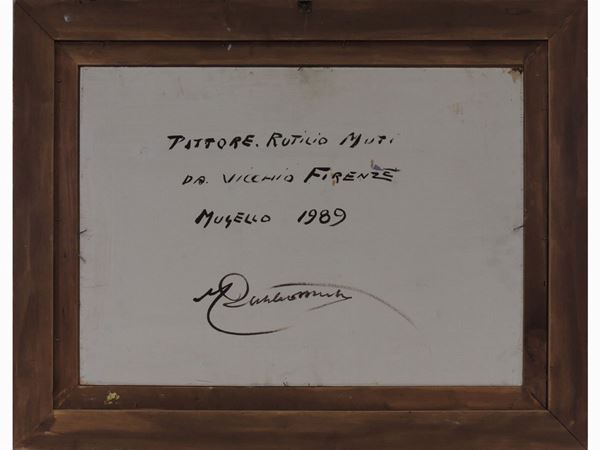 PITTORE. RUTILIO MUTI
DA. VICCHIO FIRENZE
MUGELLO 1989
Rutilio Muti